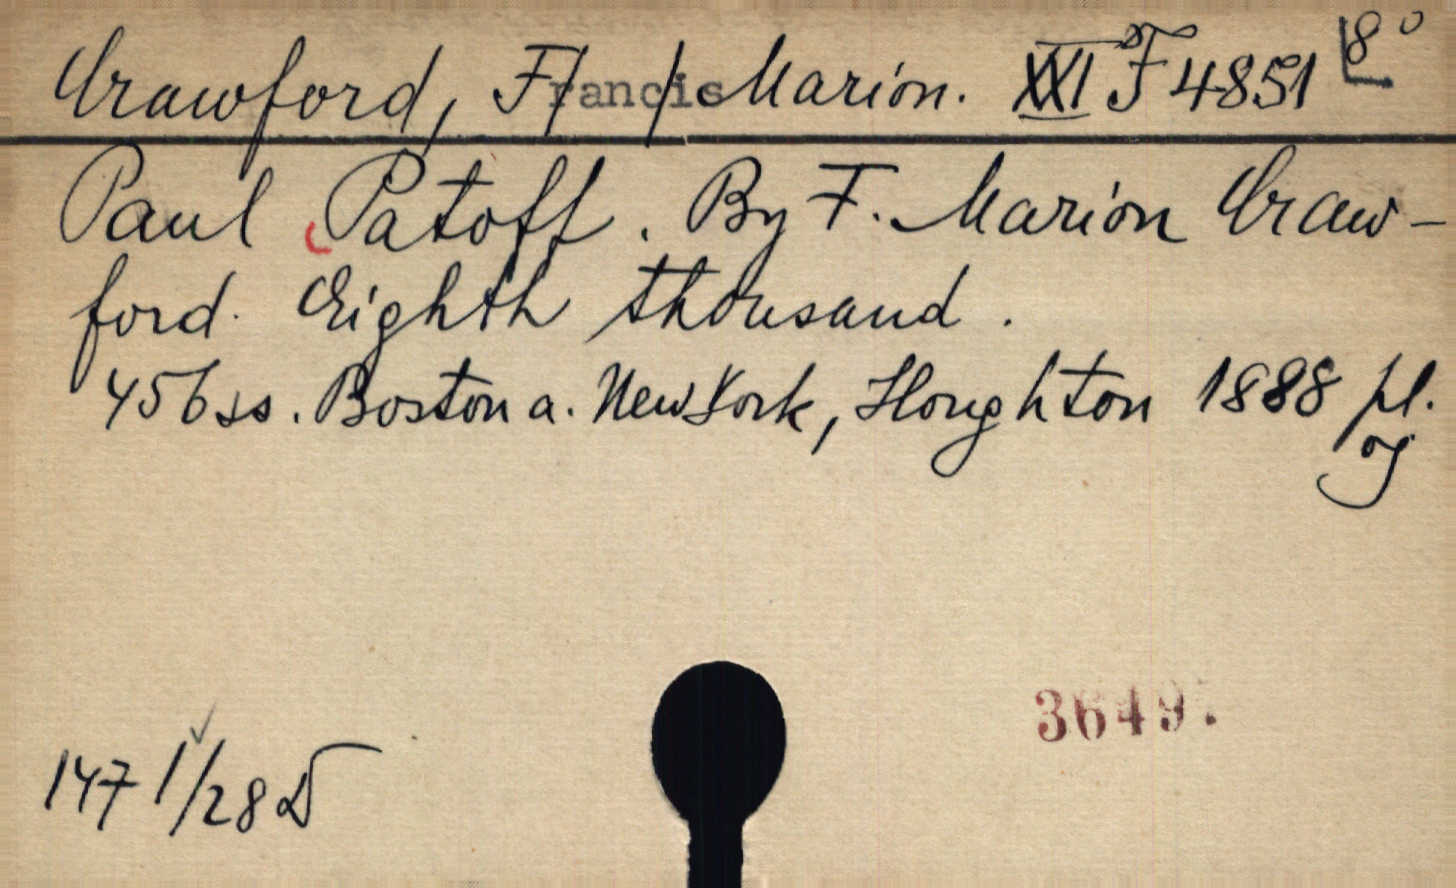 Crawford, F/rancis/ Marion. XXI F 4851 8°
Paul Patoff. By F. Marion Craw-
ford. Eighth thousand.
456 ss. Boston a. New York, Houghton 1888 pl.
og
3649.
147 1/28 D